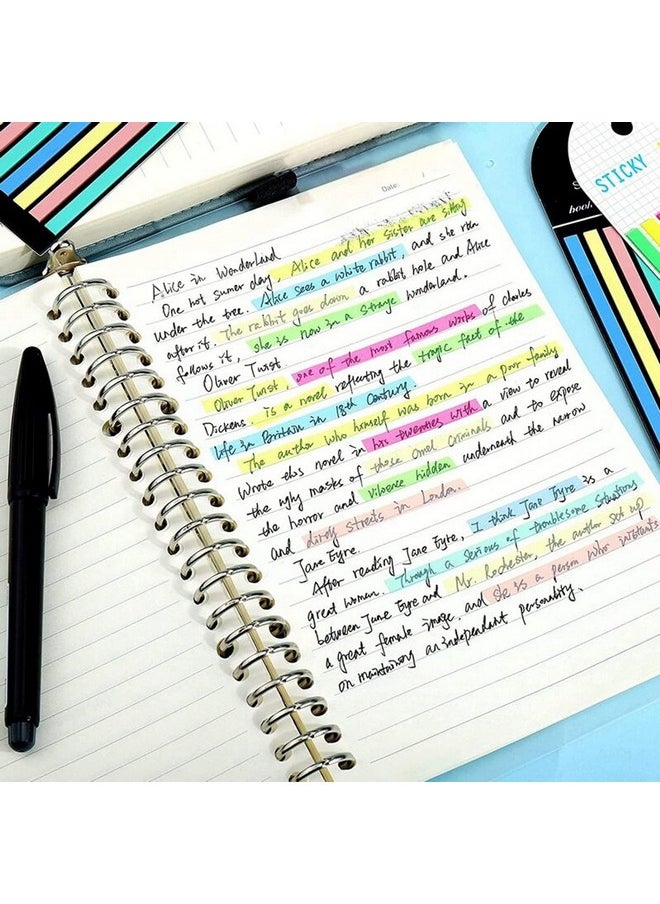 Date
STICKY
Alice in Wonderland
One hot sumer day, Alice and her sister are sitting
under the tree. Alice sees a white rabbit, and she run
after it. The rabbit goes down a rabbit hole and Alice
follows it, she is now in a strange wonderland.
Oliver Twist
Oliver Twist, one of the most famous works of charles
Dickens, is a novel reflecting the tragic fact of the
life in Britain in 18th Century
The author who himself was born in a poor family
Wrote this novel in his twenties with a view to reveal
the ugly masks of those criminals and to expose
the horror and hidden underneath the narrow
and dirty streets in London.
Jane Eyre
After reading Jane Eyre, I think Jane Eyre is a
great women. Through a serious of troublesome situations
between Jane Eyre and Mr. Rochester, the author set up
a great female image. and she is a person who
on maintaining an independant personality.